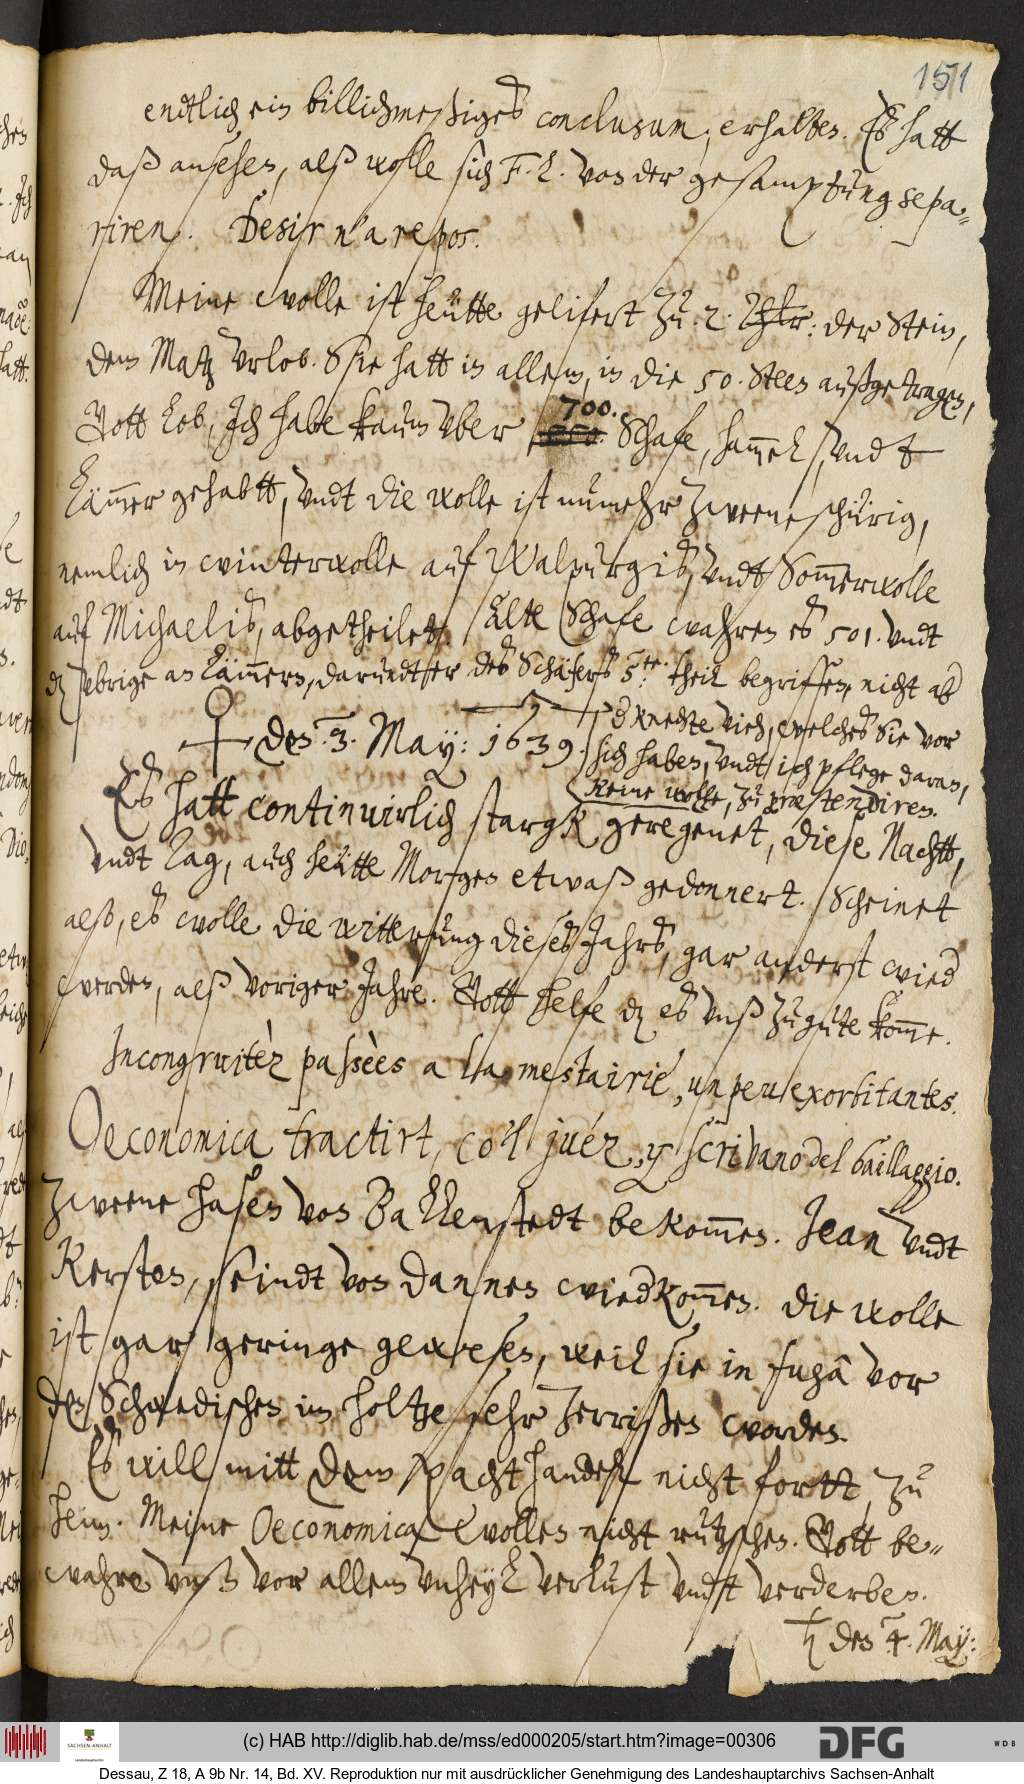 151
endtlich ein billichmeßiges conclusum, erhalten. Es hatt
daß ansehen, alß wolle sich F. L. von der gesampttung sepa-
riren. Desir n'a repos.
Meine wolle ist heütte gelifert zu 2 Thlr: der Stein,
dem Matz Urlob. Sie hatt in allem, in die 50. Steen außgetragen,
Gott lob, Ich habe kaum vber 700. Schafe, ham̅el, vndt
Läm̅er gehabtt, vndt die wolle ist numehr zweene schürig,
nemlich in winterwolle auf Walpurgis, vndt Som̅erwolle
auf Michaelis, abgetheilet. Alte Schafe wahren es 501. vndt
dz vbrige an Läm̅ern, darundter des Schäfers 5te. theil begriffen, nicht ab
der Knechte vieh, welches Sie vor
sich haben, vndt ich pflege daran,
keine wolle, zu prætendiren.
♀ den 3. May: 1639.
Es hatt continuirlich starck geregenet, diese Nachtt,
vndt Tag, auch heütte Morgen etwaß gedonnert. Scheinet
also, es wolle die witterung dieses Jahrs, gar anderst wied
werden, alß voriger Jahre. Gott helfe dz es vnß zu gute kom̅e.
Incongruitèz passèes a la mestairie, un peu exorbitantes.
Oeconomica tractirt, co'l juéz, y scrivano del baillaggio.
Zweene hasen von Ballenstedt bekom̅en. Jean vndt
Kersten, seindt von dannen wiedkom̅en. Die wolle
ist gar geringe gewesen, weil sie in fugâ vor
den Schwedischen im holtze sehr zerrißen worden.
Es will mitt dem pachthandel nicht fortt, zu
heim. Meine Oeconomica wollen nicht rutzschen. Gott be-
wahre vnß vor allem vnheyl verlust vndt verderben.
♄ den 4. May:
(c) HAB http://diglib.hab.de/mss/ed000205/start.htm?image=00306
SACHSEN-ANHALT
DFG
WDB
Dessau, Z 18, A 9b Nr. 14, Bd. XV. Reproduktion nur mit ausdrücklicher Genehmigung des Landeshauptarchivs Sachsen-Anhalt